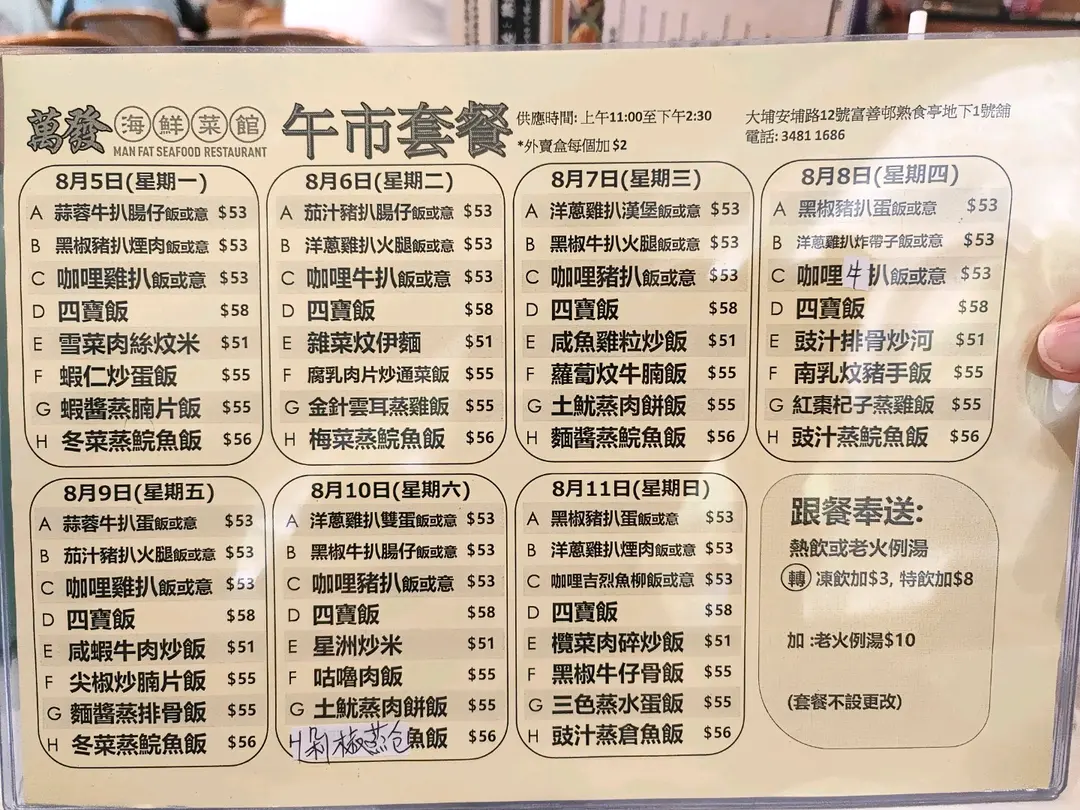 萬發 海鮮菜館
MAN FAT SEAFOOD RESTAURANT
午市套餐
供應時間: 上午11:00至下午2:30
*外賣盒每個加 $2
大埔安埔路12號富善邨熟食亭地下1號舖
電話: 3481 1686
8月5日(星期一)
A 蒜蓉牛扒腸仔飯或意 $53
B 黑椒豬扒煙肉飯或意 $53
C 咖哩雞扒飯或意 $53
D 四寶飯 $58
E 雪菜肉絲炆米 $51
F 蝦仁炒蛋飯 $55
G 蝦醬蒸腩片飯 $55
H 冬菜蒸鯇魚飯 $56
8月6日(星期二)
A 茄汁豬扒腸仔飯或意 $53
B 洋蔥雞扒火腿飯或意 $53
C 咖哩牛扒飯或意 $53
D 四寶飯 $58
E 雜菜炆伊麵 $51
F 腐乳肉片炒通菜飯 $55
G 金針雲耳蒸雞飯 $55
H 梅菜蒸鯇魚飯 $56
8月7日(星期三)
A 洋蔥雞扒漢堡飯或意 $53
B 黑椒牛扒火腿飯或意 $53
C 咖哩豬扒飯或意 $53
D 四寶飯 $58
E 咸魚雞粒炒飯 $51
F 蘿蔔炆牛腩飯 $55
G 土魷蒸肉餅飯 $55
H 麵醬蒸鯇魚飯 $56
8月8日(星期四)
A 黑椒豬扒蛋飯或意 $53
B 洋蔥雞扒炸帶子飯或意 $53
C 咖哩牛扒飯或意 $53
D 四寶飯 $58
E 豉汁排骨炒河 $51
F 南乳炆豬手飯 $55
G 紅棗杞子蒸雞飯 $55
H 豉汁蒸鯇魚飯 $56
8月9日(星期五)
A 蒜蓉牛扒蛋飯或意 $53
B 茄汁豬扒火腿飯或意 $53
C 咖哩雞扒飯或意 $53
D 四寶飯 $58
E 咸蝦牛肉炒飯 $51
F 尖椒炒腩片飯 $55
G 麵醬蒸排骨飯 $55
H 冬菜蒸鯇魚飯 $56
8月10日(星期六)
A 洋蔥雞扒雙蛋飯或意 $53
B 黑椒牛扒腸仔飯或意 $53
C 咖哩豬扒飯或意 $53
D 四寶飯 $58
E 星洲炒米 $51
F 咕嚕肉飯 $55
G 土魷蒸肉餅飯 $55
H 剁椒蒸仓魚飯 $56
8月11日(星期日)
A 黑椒豬扒蛋飯或意 $53
B 洋蔥雞扒煙肉飯或意 $53
C 咖哩吉烈魚柳飯或意 $53
D 四寶飯 $58
E 欖菜肉碎炒飯 $51
F 黑椒牛仔骨飯 $55
G 三色蒸水蛋飯 $55
H 豉汁蒸倉魚飯 $56
跟餐奉送:
熱飲或老火例湯
轉 凍飲加$3, 特飲加$8
加 :老火例湯$10
(套餐不設更改)